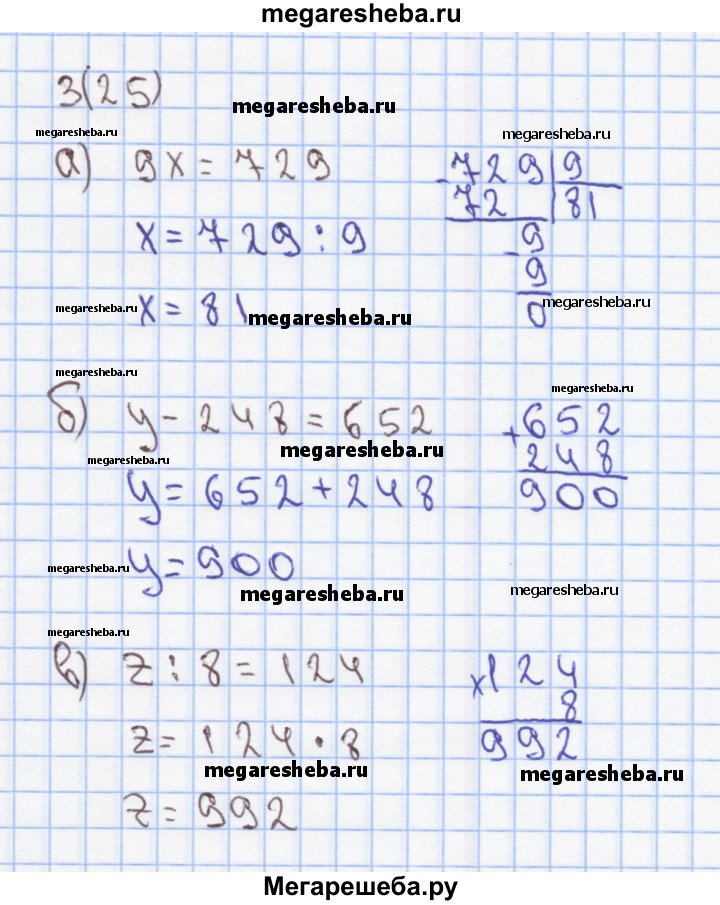 megaresheba.ru
3(25)
megaresheba.ru
megaresheba.ru
megaresheba.ru
а) 9x = 729
- 729 | 9
72 | 81
x = 729 : 9
- 9
9
0
megaresheba.ru
x = 81
megaresheba.ru
megaresheba.ru
megaresheba.ru
megaresheba.ru
б) y - 248 = 652
+ 652
248
900
megaresheba.ru
megaresheba.ru
y = 652 + 248
megaresheba.ru
y = 900
megaresheba.ru
megaresheba.ru
megaresheba.ru
в) z : 8 = 124
x 124
8
992
z = 124 · 8
megaresheba.ru
megaresheba.ru
z = 992
Мегарешеба.ру